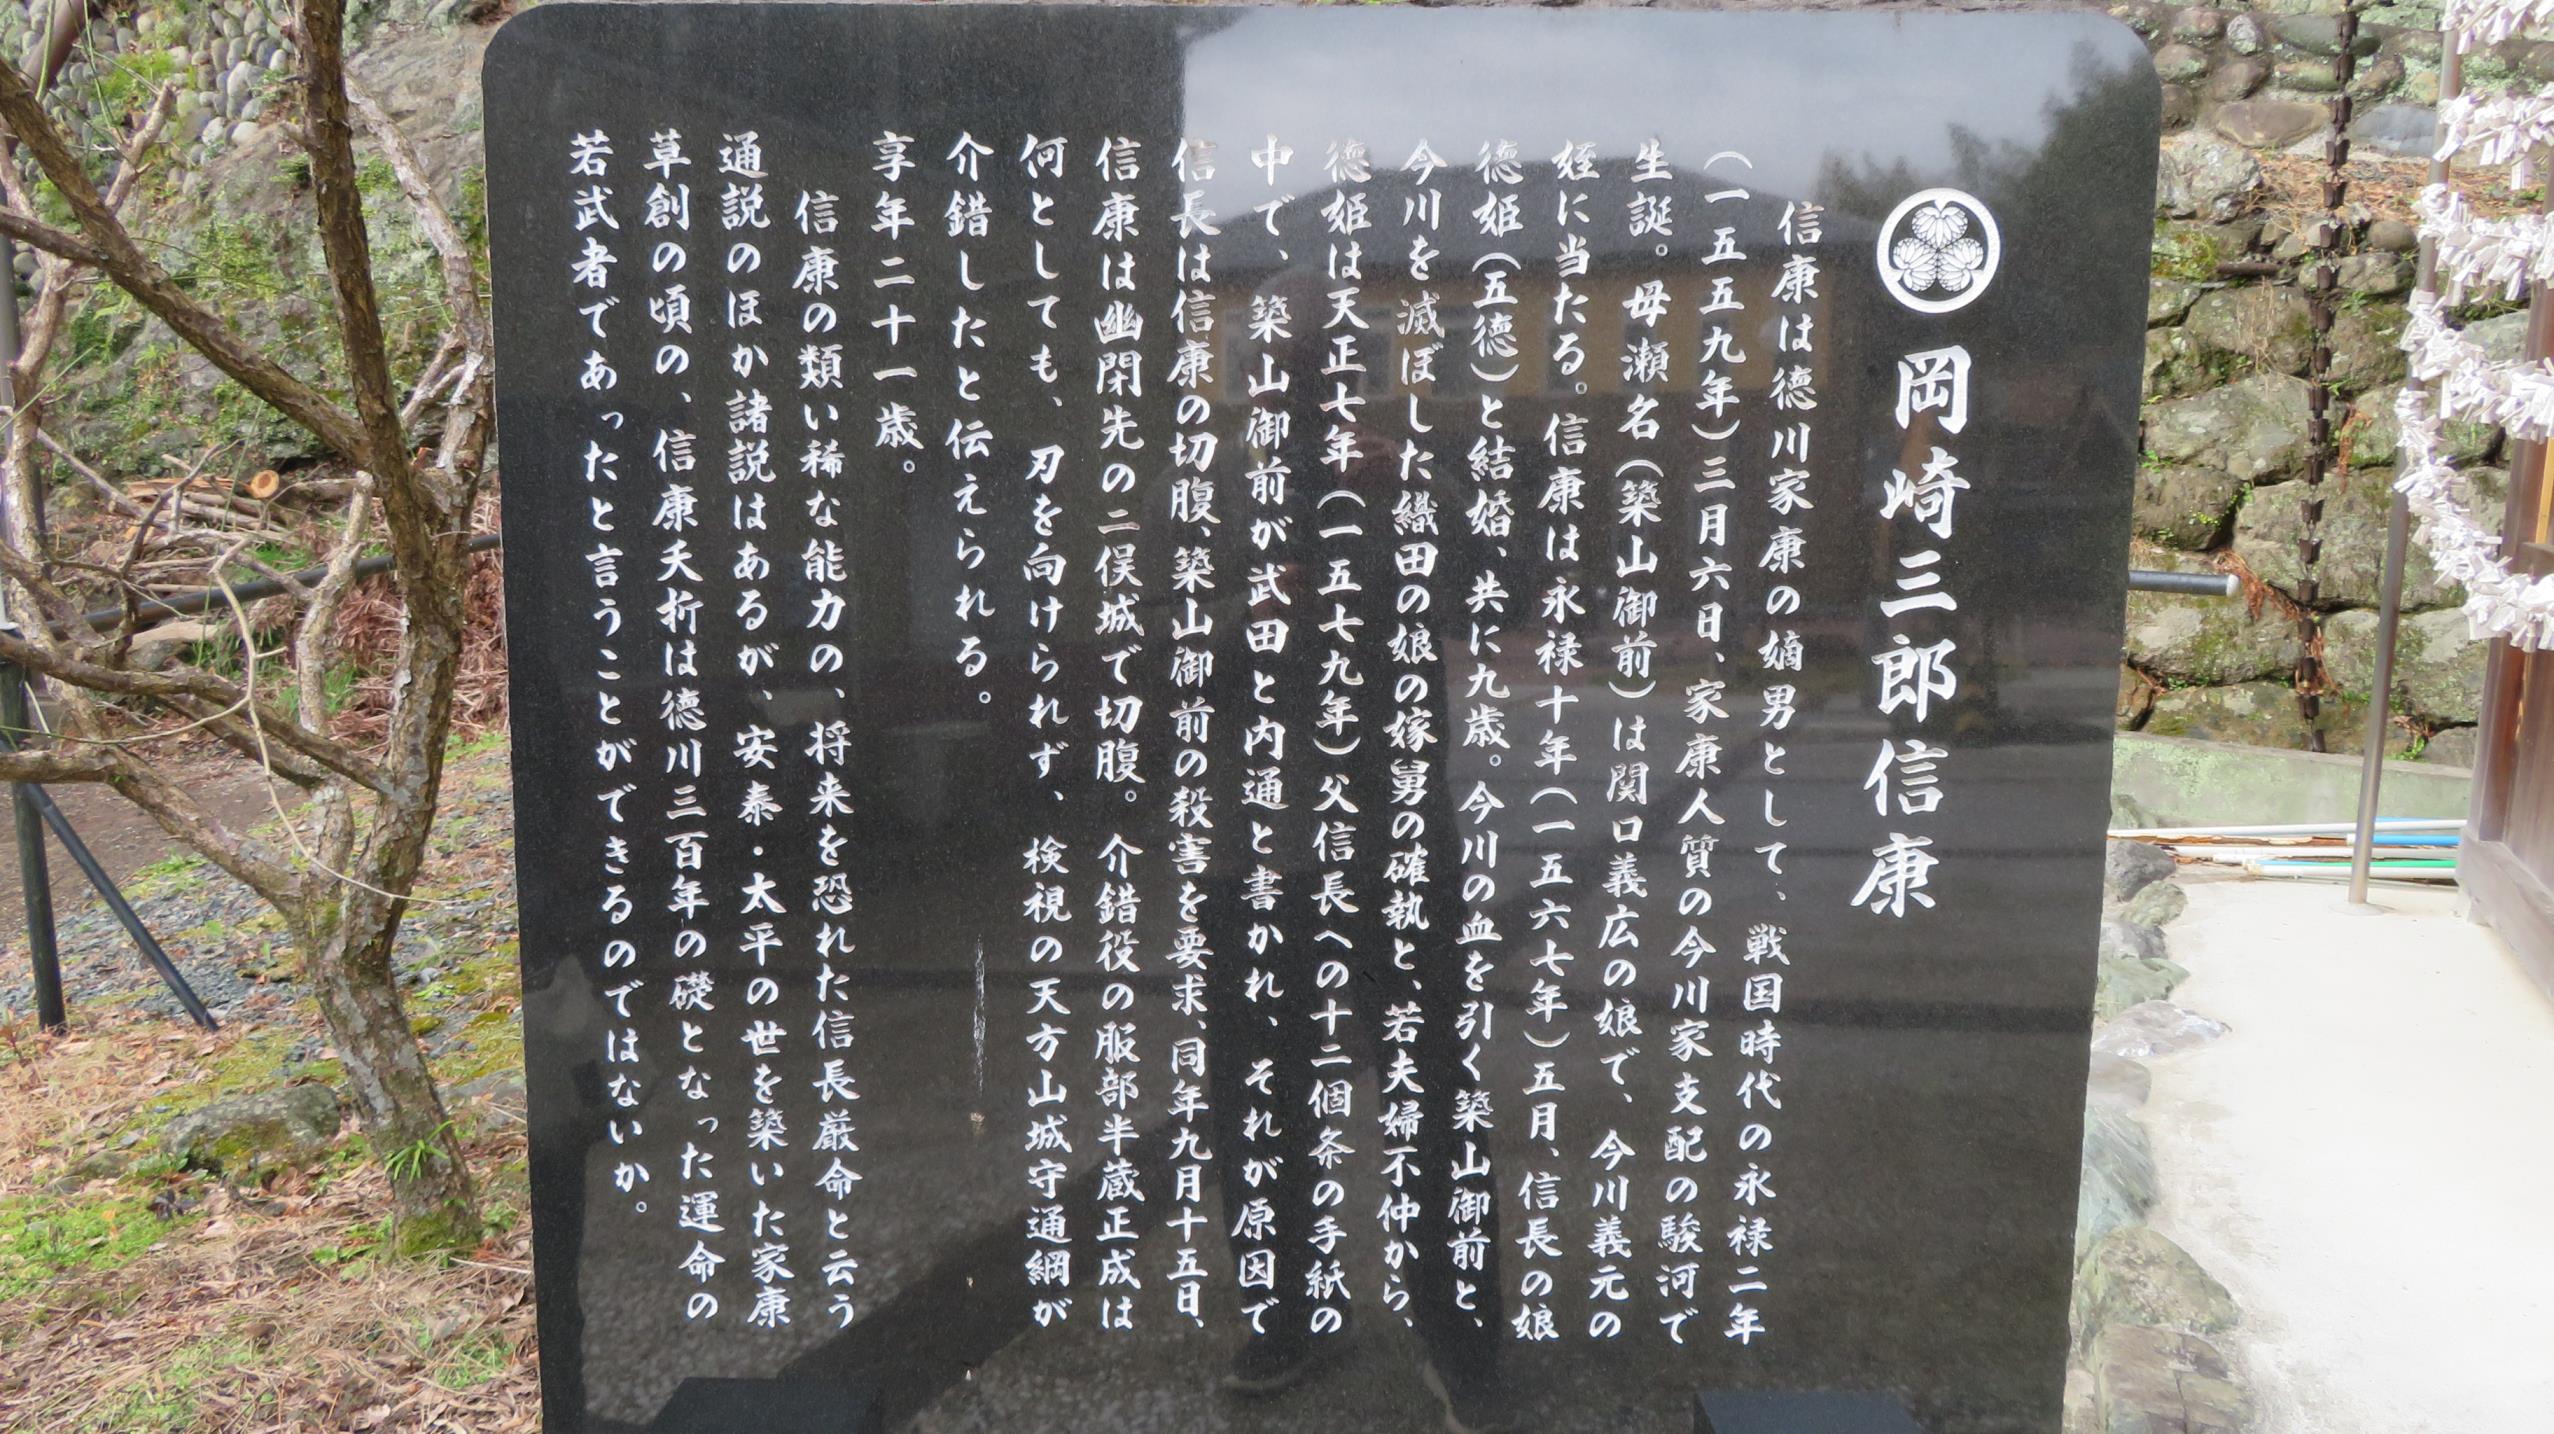 岡崎三郎信康
信康は徳川家康の嫡男として、戦国時代の永禄二年
(一五五九年)三月六日、家康人質の今川家支配の駿河で
生誕。母瀬名(築山御前)は関口義広の娘で、今川義元の
姪に当たる。信康は永禄十年(一五六七年)五月、信長の娘
徳姫(五徳)と結婚、共に九歳。今川の血を引く築山御前と、
今川を滅ぼした織田の娘の嫁舅の確執と、若夫婦不仲から、
徳姫は天正七年(一五七九年)父信長への十二個条の手紙の
中で、築山御前が武田と内通と書かれ、それが原因で
信長は信康の切腹、築山御前の殺害を要求、同年九月十五日、
信康は幽閉先の二俣城で切腹。介錯役の服部半蔵正成は
何としても、刃を向けられず、検視の天方山城守通綱が
介錯したと伝えられる。
享年二十一歳。
信康の類い稀な能力の、将来を恐れた信長厳命と云う
通説のほか諸説はあるが、安泰・太平の世を築いた家康
草創の頃の、信康夭折は徳川三百年の礎となった運命の
若武者であったと言うことができるのではないか。